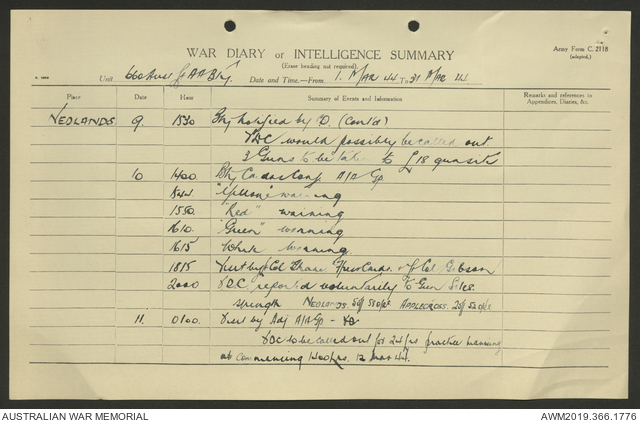 WAR DIARY or INTELLIGENCE SUMMARY
Army Form C. 2118
(Erase heading not required).
(adapted.)
Unit
Date and Time.—From 1 MAR 44 To 31 MAR 44
Place Date Hour Summary of Events and Information Remarks and references to Appendices, Diaries, &c.
NEDLANDS 9. 1530 Bty notified by D. (Cont'd)
VDC would possibly be called out
3 Guns to be to L18 gunsite
10 1400 Bty Comdrs Conf A/A Gp.
"Yellow" warning
1550 "Red" warning
1610 "Green" warning
1615 White warning.
1815 Visit by Col Lt Col Gibson
2000 VDC reported voluntarily to Gun Sites.
strength NEDLANDS APPLECROSS
11. 0100. Visit by Adj A/A Gp -
VDC to be called out for 24 hrs practice manning
commencing 1400 hrs. 12 Mar 44.
AUSTRALIAN WAR MEMORIAL
AWM2019.366.1776